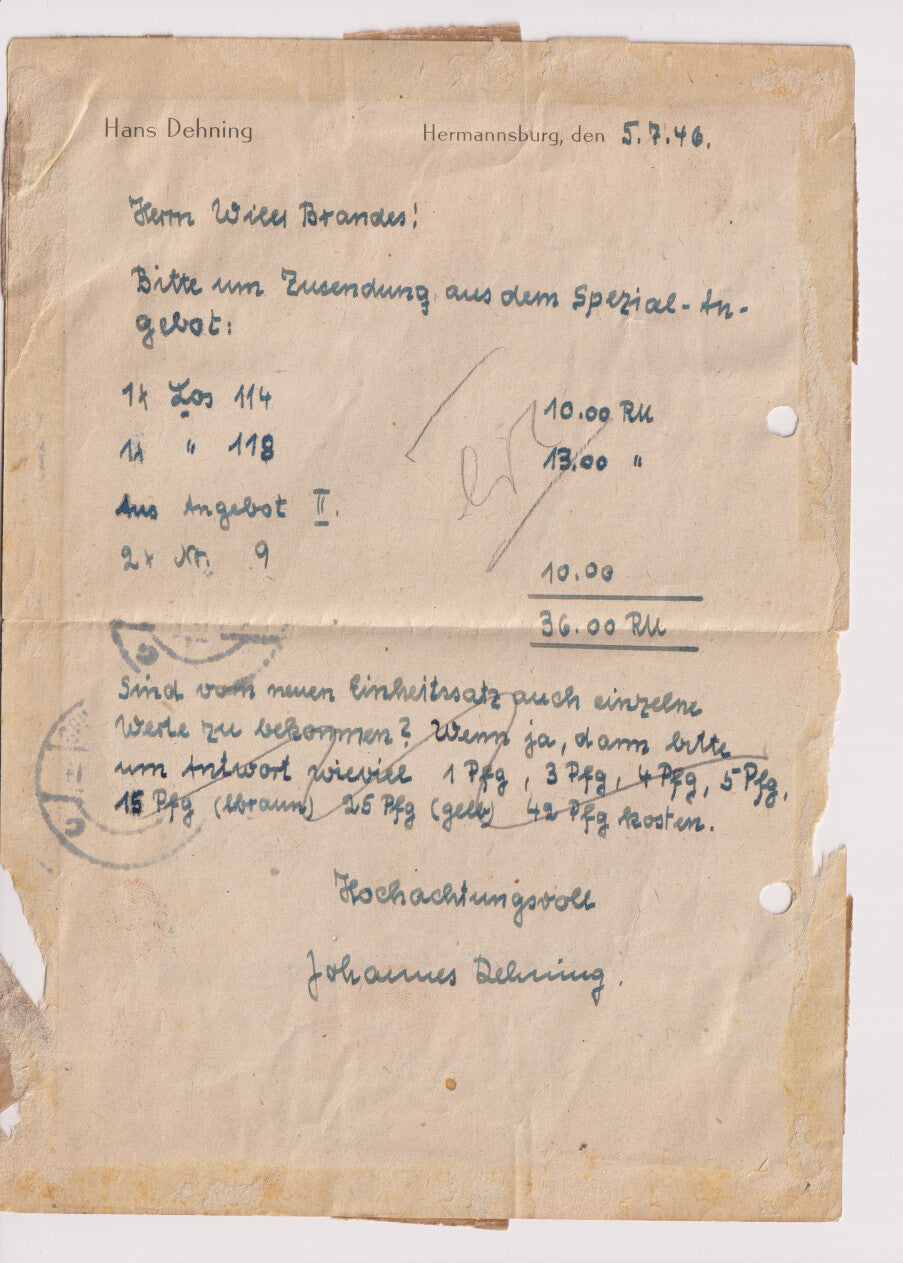 Hans Dehning
Hermannsburg, den 5.7.46.
Herrn Willi Brandes!
Bitte um Zusendung aus dem Spezial-An-
gebot:
1x Los 114 10.00 RM
1x " 118 13.00 "
Aus Angebot II.
2x Nr. 9 10.00
36.00 RM
Sind vom neuen Einheitssatz auch einzelne
Werte zu bekommen? Wenn ja, dann bitte
um Antwort wieviel 1 Pfg, 3 Pfg, 4 Pfg, 5 Pfg,
15 Pfg (braun) 25 Pfg (gelb) 42 Pfg kosten.
Hochachtungsvoll
Johannes Dehning.